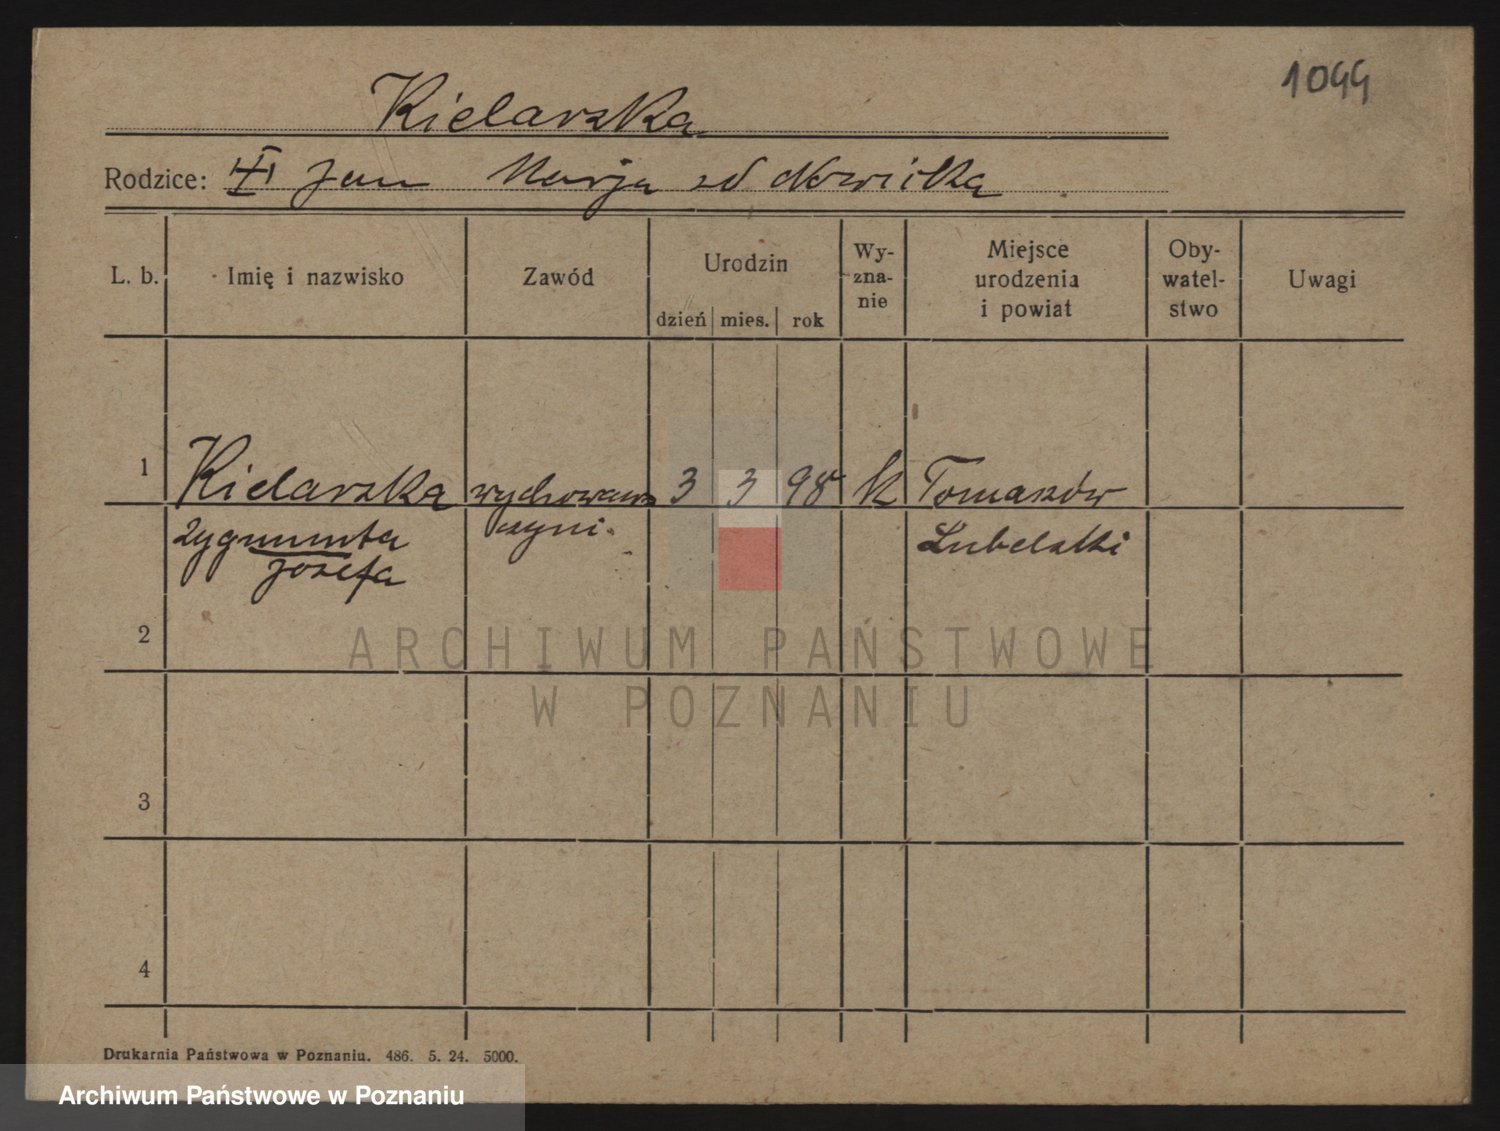 1099
Kielarska
Rodzice: Jan Marja zd Nowicka
L. b. Imię i nazwisko Zawód Urodzin dzień mies. rok Wy- zna- nie Miejsce urodzenia i powiat Oby- watel- stwo Uwagi
1 Kielarska wychowaw 3 3 98 k Tomaszów
Zygmunta czyni. Lubelski
Józefa
2
ARCHIWUM PAŃSTWOWE
W POZNANIU
3
4
Drukarnia Państwowa w Poznaniu. 486. 5. 24. 5000.
Archiwum Państwowe w Poznaniu